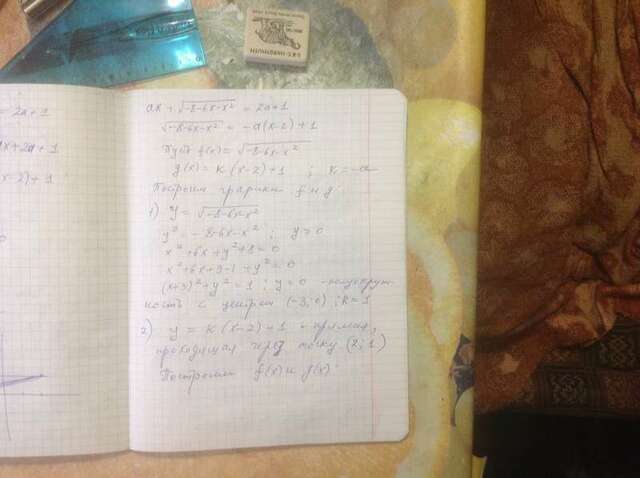 - 2a+1
ax+2a+1
x-2)+1
ax + √-8-6x-x² = 2a+1
√-8-6x-x² = -a(x-2)+1
Пусть f(x) = √-8-6x-x²
g(x) = k(x-2)+1 ; k=-a
Построим графики f и g.
1) y = √-8-6x-x²
y² = -8-6x-x² ; y≥0
x²+6x+y²+8=0
x²+6x+9-1+y²=0
(x+3)²+y²=1 ; y≥0 - полуокруж-
ность с центром (-3;0) ; R=1
2) y = k(x-2)+1 - прямая,
проходящая через точку (2;1)
Построим f(x) и g(x)